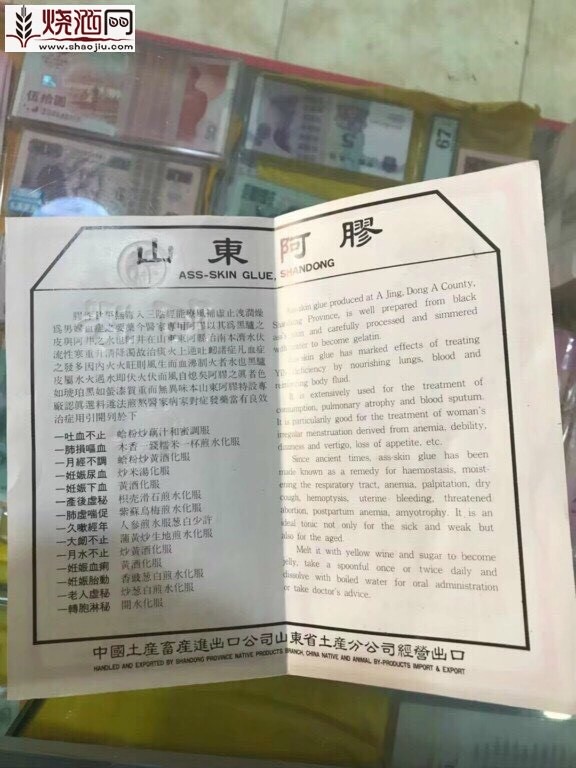 烧酒网
www.shaojiu.com
伍拾圆
67
山東阿膠
ASS-SKIN GLUE, SHANDONG
流性塞重力清降濁故治瘀火上逆吐衄諸症凡血症
之發多因內火火旺則風生而血溥制火者水也黑驢
皮屬水火過水即伏火伏而風自熄矣阿膠之眞者色
如琥珀黑如鎣漆質重而無異味本山東阿膠特設專
廠認眞選料遂法煎熬醫家病家對症發藥當有良效
治症用引開列於下
一吐血不止 蛤粉炒藕汁和蜜調服
一肺損嘔血 木香一錢糯米一杯煎水化服
一月經不調 蛤粉炒黃酒化服
一妊娠尿血 炒米湯化服
一妊娠下血 黃酒化服
一產後虛秘 枳壳滑石煎水化服
一肺虛喘促 紫蘇烏梅煎水化服
一久嗽經年 人參煎水服葱白少許
一大衄不止 蒲黃炒生地煎水化服
一月水不止 炒黃酒化服
一妊娠血痢 黃酒化服
一妊娠胎動 香豉葱白煎水化服
一老人虛秘 炒葱白煎水化服
一轉胞淋秘 開水化服
Ass-skin glue produced at A Jing, Dong A County,
Shandong Province, is well prepared from black
ass's skin and carefully processed and simmered
with water to become gelatin.
Ass-skin glue has marked effects of treating
YIN deficiency by nourishing lungs, blood and
remaining body fluid.
It is extensively used for the treatment of
consumption, pulmonary atrophy and blood sputum.
It is particularly good for the treatment of woman's
irregular menstruation derived from anemia, debility,
dizziness and vertigo, loss of appetite, etc.
Since ancient times, ass-skin glue has been
made known as a remedy for haemostasis, moist-
ening the respiratory tract, anemia, palpitation, dry
cough, hemoptysis, uterine bleeding, threatened
abortion, postpartum anemia, amyotrophy. It is an
ideal tonic not only for the sick and weak but
also for the aged.
Melt it with yellow wine and sugar to become
jelly, take a spoonful once or twice daily and
dissolve with boiled water for oral admnistration
or take doctor's advice.
中國土產畜產進出口公司山東省土產分公司經營出口
HANDLED AND EXPORTED BY SHANDONG PROVINCE NATIVE PRODUCTS BRANCH, CHINA NATIVE AND ANIMAL BY-PRODUCTS IMPORT & EXPORT